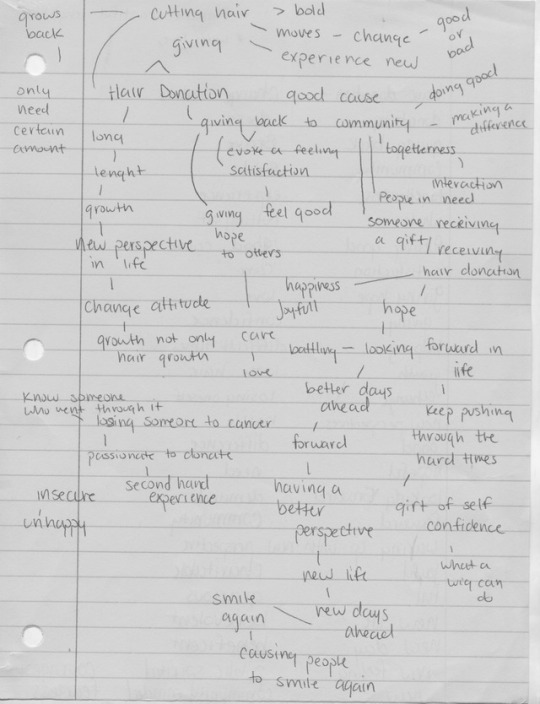 grows
back
cutting hair > bold
giving
moves - change - good
or
bad
experience new
only
need
certain
amount
Hair Donation
good cause
doing good
giving back to community - making a
difference
long
lenght
growth
New perspective
in life
change attitude
growth not only
hair growth
evoke a feeling
satisfaction
feel good
giving
hope
to others
care
love
togetterness
interaction
People in need
someone receiving
a gift/receiving
hair donation
happiness
Joyfull
hope
battling - looking forward in
life
better days
ahead
forward
having a
better
perspective
new life
new days
ahead
smile
again
causing people
to smile again
keep pushing
through the
hard times
girt of self
confidence
what a
wig can
do
Know someone
who went through it
losing someore to cancer
passionate to donate
second hand
experience
insecure
unhappy